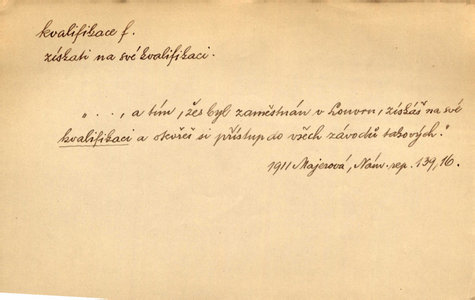 kvalifikace f.
získati na své kvalifikaci.
„ . . . , a tím, žes byl zaměstnán v Louvru, získáš na své
kvalifikaci a otevřeš si přístup do všech závodů takových.“
1911 Majerová, Nám. rep. 139, 16.